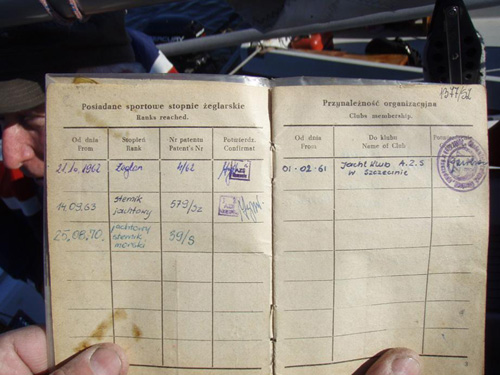 Posiadane sportowe stopnie żeglarskie
Ranks reached.
Od dnia
From
Stopień
Rank
Nr patentu
Patent's Nr
Potwierdz.
Confirmat
21.10.1962
żeglarz
4/62
14.09.63
sternik
jachtowy
579/sz
25.08.70.
jachtowy
sternik
morski
59/S
1377/52
Przynależność organizacyjna
Clubs membership.
Od dnia
From
Do klubu
Name of Club
01-02-61
Jacht Klub A.Z.S
w Szczecinie